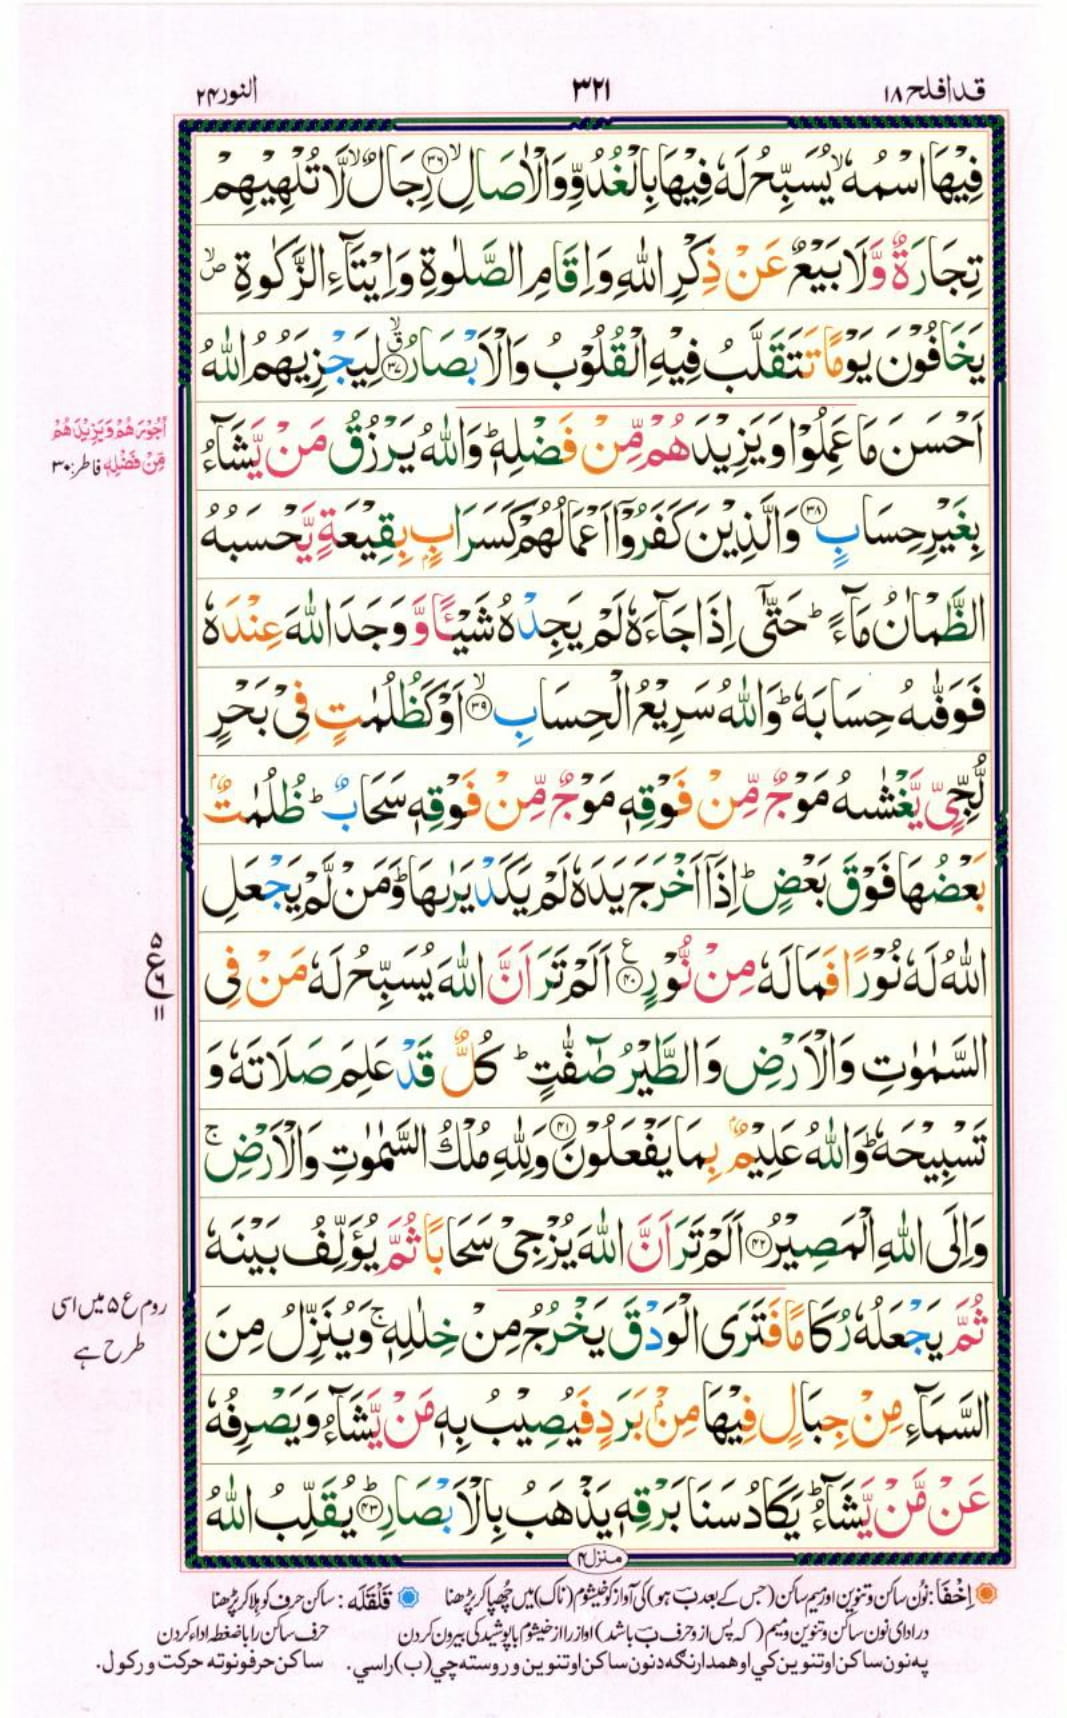 قد افلح ۱۸
۳۲۱
النور ۲۴
فِيْهَا اسْمُهٗ ۙ يُسَبِّحُ لَهٗ فِيْهَا بِالْغُدُوِّ وَالْاٰصَالِ ۙ‏﴿۳۶﴾ رِجَالٌ ۙ لَّا تُلْهِيْهِمْ
تِجَارَةٌ وَّلَا بَيْعٌ عَنْ ذِكْرِ اللّٰهِ وَاِقَامِ الصَّلٰوةِ وَاِيْتَآءِ الزَّكٰوةِ ۙ
يَخَافُوْنَ يَوْمًا تَتَقَلَّبُ فِيْهِ الْقُلُوْبُ وَالْاَبْصَارُ ۙ﴿۳۷﴾ لِيَجْزِيَهُمُ اللّٰهُ
اَحْسَنَ مَا عَمِلُوْا وَيَزِيْدَهُمْ مِّنْ فَضْلِهٖ ؕ وَاللّٰهُ يَرْزُقُ مَنْ يَّشَآءُ
بِغَيْرِ حِسَابٍ ﴿۳۸﴾ وَالَّذِيْنَ كَفَرُوْٓا اَعْمَالُهُمْ كَسَرَابٍۭ بِقِيْعَةٍ يَّحْسَبُهُ
الظَّمْاٰنُ مَآءً ؕ حَتّٰٓى اِذَا جَآءَهٗ لَمْ يَجِدْهُ شَيْـًٔا وَّ وَجَدَ اللّٰهَ عِنْدَهٗ
فَوَفّٰىهُ حِسَابَهٗ ؕ وَاللّٰهُ سَرِيْعُ الْحِسَابِ ۙ﴿۳۹﴾ اَوْ كَظُلُمٰتٍ فِىْ بَحْرٍ
لُّجِّىٍّ يَّغْشٰىهُ مَوْجٌ مِّنْ فَوْقِهٖ مَوْجٌ مِّنْ فَوْقِهٖ سَحَابٌ ؕ ظُلُمٰتٌۢ
بَعْضُهَا فَوْقَ بَعْضٍ ؕ اِذَآ اَخْرَجَ يَدَهٗ لَمْ يَكَدْ يَرٰىهَا ؕ وَمَنْ لَّمْ يَجْعَلِ
اللّٰهُ لَهٗ نُوْرًا فَمَا لَهٗ مِنْ نُّوْرٍ ﴿۴۰﴾ اَلَمْ تَرَ اَنَّ اللّٰهَ يُسَبِّحُ لَهٗ مَنْ فِى
السَّمٰوٰتِ وَالْاَرْضِ وَالطَّيْرُ صٰٓفّٰتٍ ؕ كُلٌّ قَدْ عَلِمَ صَلَاتَهٗ وَ
تَسْبِيْحَهٗ ؕ وَاللّٰهُ عَلِيْمٌۢ بِمَا يَفْعَلُوْنَ ﴿۴۱﴾ وَلِلّٰهِ مُلْكُ السَّمٰوٰتِ وَالْاَرْضِ ۚ
وَاِلَى اللّٰهِ الْمَصِيْرُ ﴿۴۲﴾ اَلَمْ تَرَ اَنَّ اللّٰهَ يُزْجِىْ سَحَابًا ثُمَّ يُؤَلِّفُ بَيْنَهٗ
ثُمَّ يَجْعَلُهٗ رُكَامًا فَتَرَى الْوَدْقَ يَخْرُجُ مِنْ خِلٰلِهٖ ۚ وَيُنَزِّلُ مِنَ
السَّمَآءِ مِنْ جِبَالٍ فِيْهَا مِنْۢ بَرَدٍ فَيُصِيْبُ بِهٖ مَنْ يَّشَآءُ وَيَصْرِفُهٗ
عَنْ مَّنْ يَّشَآءُ ؕ يَكَادُ سَنَا بَرْقِهٖ يَذْهَبُ بِالْاَبْصَارِ ؕ﴿۴۳﴾ يُقَلِّبُ اللّٰهُ
اُجُوْرَهُمْ وَيَزِيْدَهُمْ
مِّنْ فَضْلِهٖ فاطر: ۳۰
۵
ع
۶
۱۱
روم ع ۵ میں اسی
طرح ہے
منزل ۴
اِخْفَا: نُون ساکن و تنوین اور میم ساکن (جس کے بعد بَ ہو) کی آواز کو خیشوم (ناک) میں چُھپا کر پڑھنا قَلْقَلَه: ساکن حرف کو ہِلا کر پڑھنا
در ادای نون ساکن و تنوین و میم (که پس از دو حرف بَ باشد) اواز را از خیشوم با پوشیدگی بیرون کردن حرف ساکن را با ضغطه اداء کردن
په نون ساکن او تنوین کي او همدارنګه د نون ساکن او تنوین وروسته چي (ب) راسي. ساکن حرفونو ته حرکت ورکول.